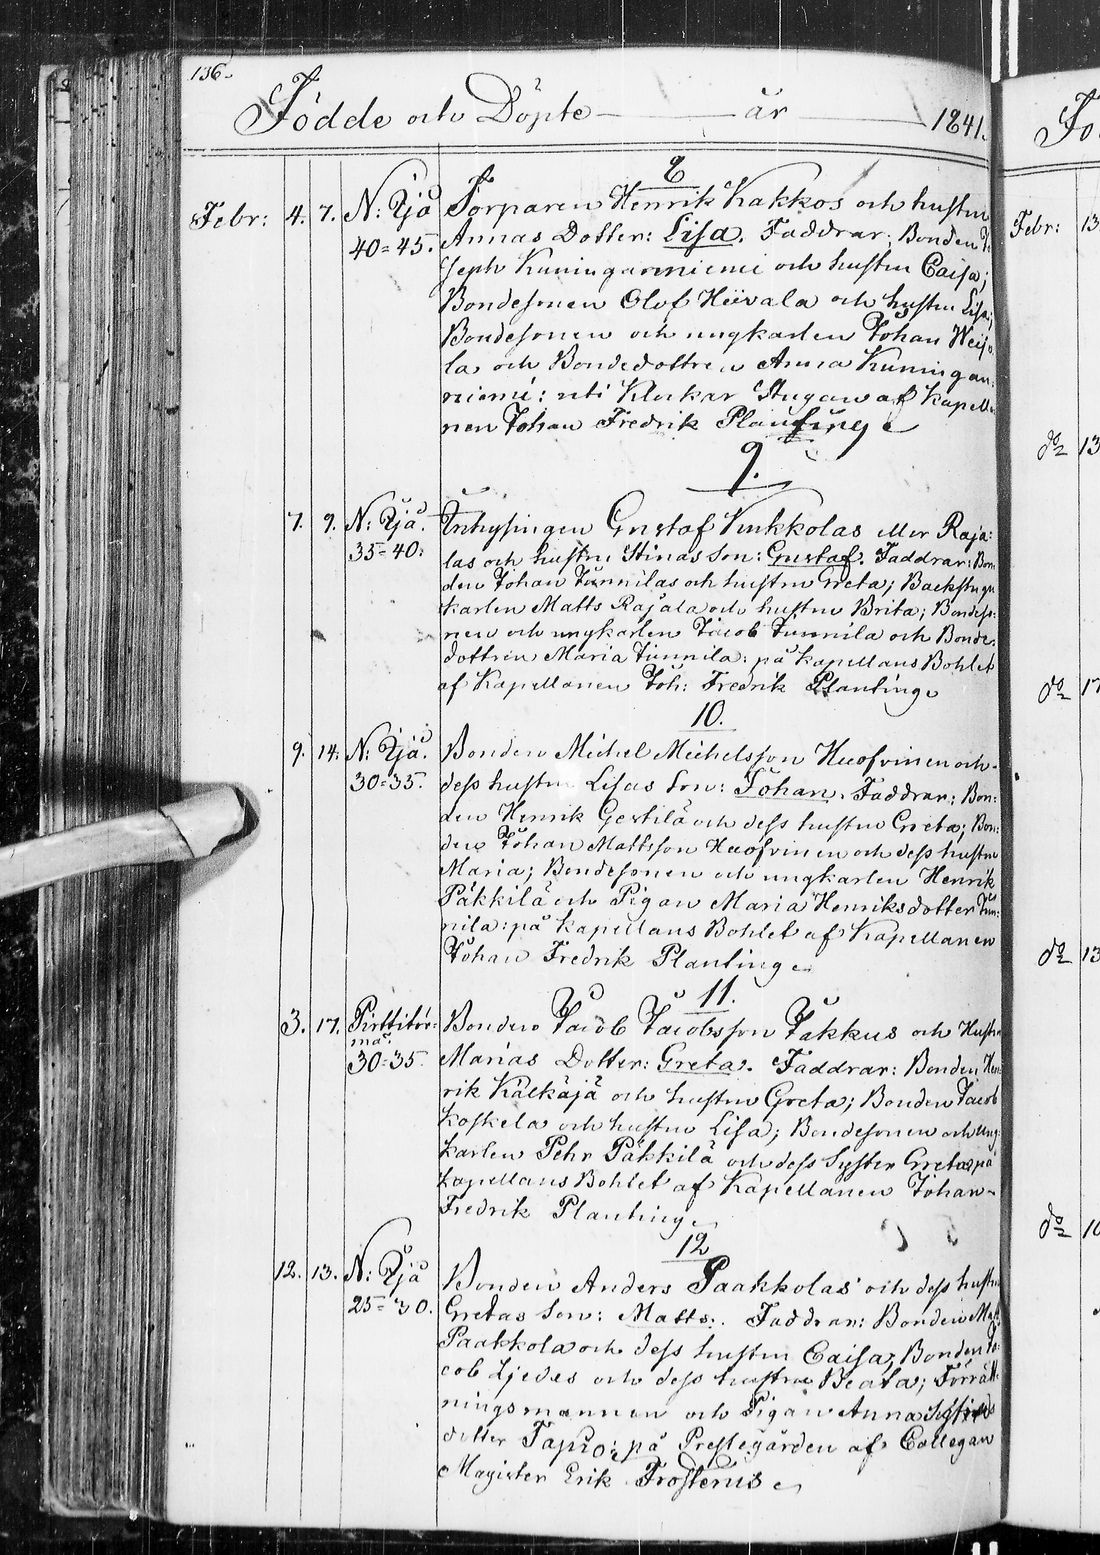 136.
Födde och Döpte år 1841.
8
Febr: 4. 7. N: Ijå Torparen Henrik Kakkos och hustru
40=45. Annas Dotter: Lisa. Faddrar: Bonden Jo
seph Kuninganniemi och hustru Caisa;
Bondesonen Olof Hiivala och hustru Lisa;
Bondesonen och ungkarlen Johan Weijo
la och Bondedottren Anna Kuningan:
niemi: uti Klockar Stugan af Kapella
nen Johan Fredrik Planting
9.
7. 9. N: Ijå. Inhysingen Gustaf Kinkkolas eller Raja:
35=40. las och hustru Stinas Son: Gustaf. Faddrar: Bon
den Johan Tunnilas och hustru Greta; Backstugu
karlen Matts Rajala och hustru Brita; Bondeso:
nen och ungkarlen Jacob Tunnila och Bonde
dottren Maria Tunnila: på Kapellans Bohlet
af Kapellanen Joh: Fredrik Planting
10.
9. 14. N: Ijå. Bonden Michel Michelsson Huofvinen och
30=35. dess hustru Lisas Son: Johan. Faddrar: Bon:
den Henrik Gertilä och dess hustru Greta; Bon:
den Johan Mattsson Huofvinen och dess hustru
Maria; Bondesonen och ungkarlen Henrik
Päkkilä och Pigan Maria Henriksdotter Tun:
nila: på Kapellans Bohlet af Kapellanen
Johan Fredrik Planting
11.
3. 17. Pirttitör= Bonden Jacob Jacobsson Jakkus och Hustru
mä.
30=35. Marias Dotter: Greta. Faddrar: Bonden Hen
rik Kälkäjä och hustru Greta; Bonden Jacob
Koskela och hustru Lisa; Bondesonen och Ung:
karlen Pehr Päkkilä och dess Syster Greta: på
Kapellans Bohlet af Kapellanen Johan
Fredrik Planting
12
12. 13. N: Ijå Bonden Anders Paakkolas och dess hustru
25=30. Gretas Son: Matts. Faddrar: Bonden Matts
Paakkola och dess hustru Caisa; Bonden Ja:
cob Ljedes och dess hustru Beata; Förrätt:
ningsmannen och Pigan Anna
dotter Tapio: på Prestegården af Collegan
Magister Erik Frosterus
Fö
Febr: 13
do 13
do 17
do 13
do 10